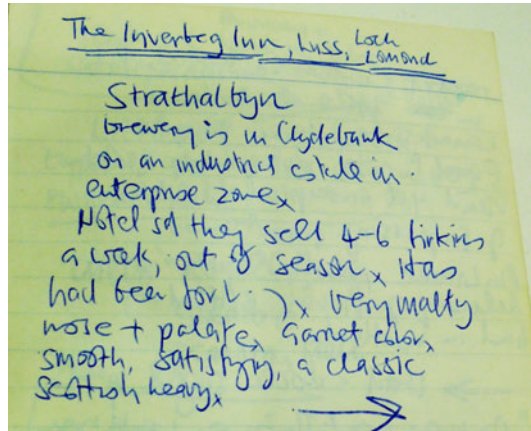 The Inverbeg Inn, Luss, Loch Lomond
Strathalbyn
brewery is in Clydebank
on an industrial estate in
enterprise zone x
Hotel sd they sell 4-6 firkins
a week, out of season x Has
had beer for x very malty
nose + palate x Garnet color x
smooth, satisfying, a classic
Scottish heavy x